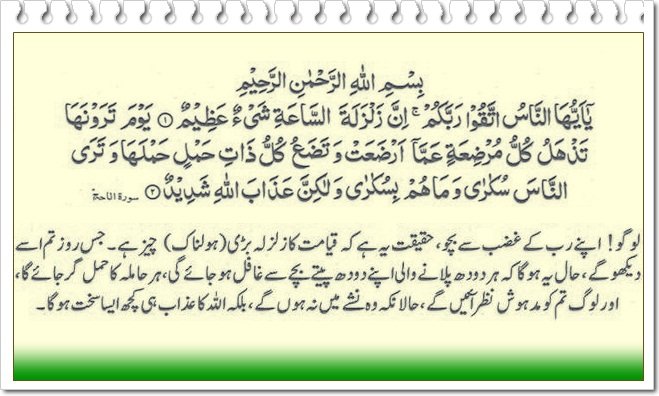 بِسْمِ اللهِ الرَّحْمٰنِ الرَّحِيْمِ
يٰۤاَيُّهَا النَّاسُ اتَّقُوْا رَبَّكُمْ ۚ اِنَّ زَلْزَلَةَ السَّاعَةِ شَيْءٌ عَظِيْمٌ ۝۱ يَوْمَ تَرَوْنَهَا
تَذْهَلُ كُلُّ مُرْضِعَةٍ عَمَّاۤ اَرْضَعَتْ وَ تَضَعُ كُلُّ ذَاتِ حَمْلٍ حَمْلَهَا وَ تَرَى
النَّاسَ سُكٰرٰى وَ مَا هُمْ بِسُكٰرٰى وَ لٰكِنَّ عَذَابَ اللهِ شَدِيْدٌ ۝۲ سورة الحج
لوگو! اپنے رب کے غضب سے بچو، حقیقت یہ ہے کہ قیامت کا زلزلہ بڑی (ہولناک) چیز ہے۔ جس روز تم اسے
دیکھو گے، حال یہ ہوگا کہ ہر دودھ پلانے والی اپنے دودھ پیتے بچے سے غافل ہو جائے گی، ہر حاملہ کا حمل گر جائے گا،
اور لوگ تم کو مدہوش نظر آئیں گے، حالانکہ وہ نشے میں نہ ہوں گے، بلکہ اللہ کا عذاب ہی کچھ ایسا سخت ہوگا۔